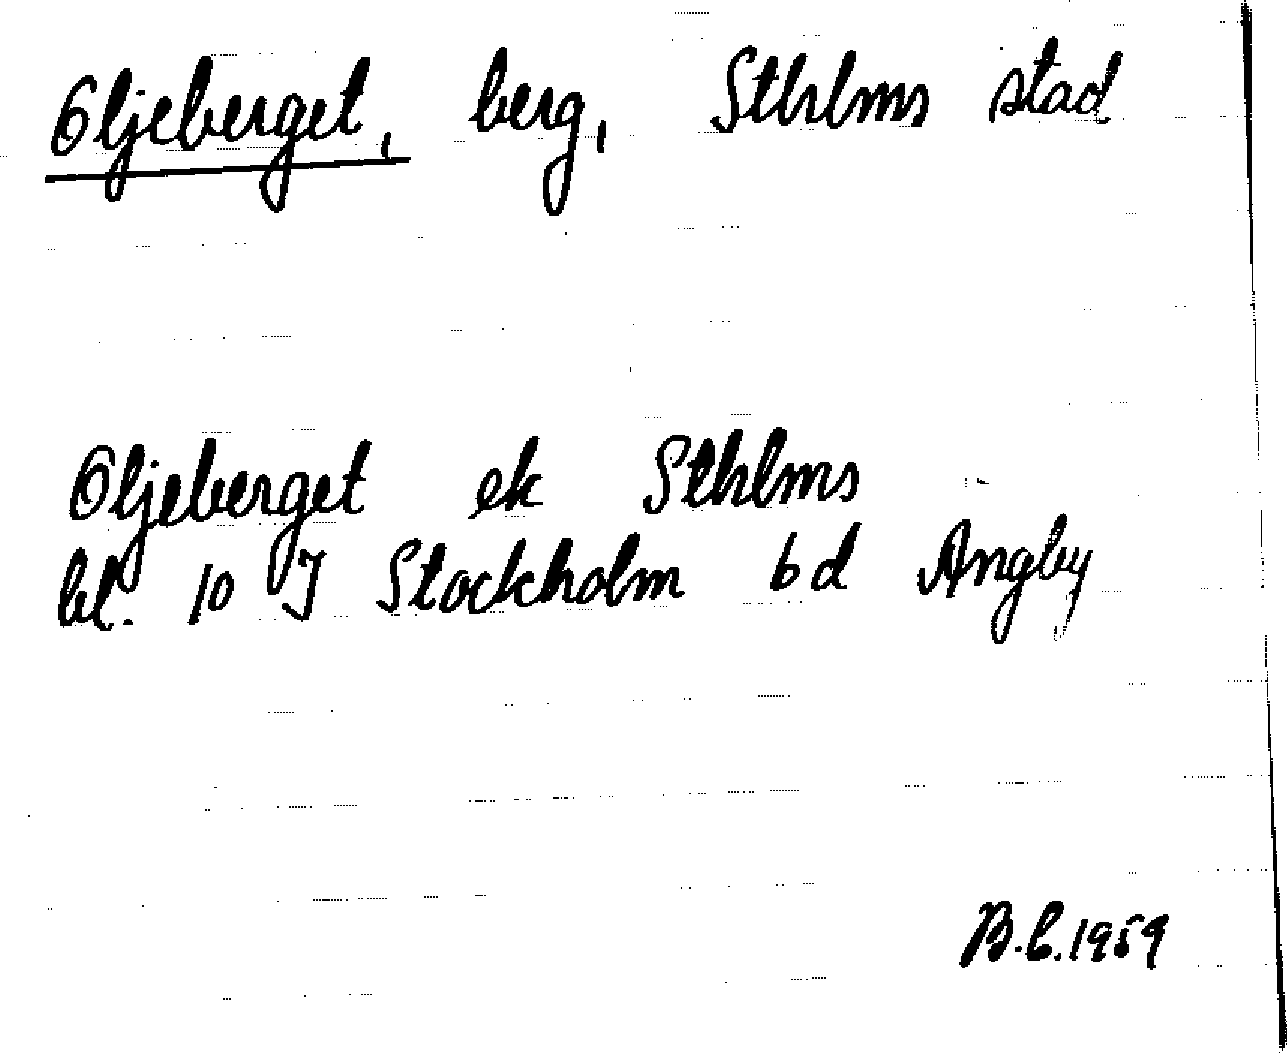 Oljeberget, berg, Sthlms stad
Oljeberget ek Sthlms
bl. 10 I Stockholm 6 d Ängby
B.L. 1959